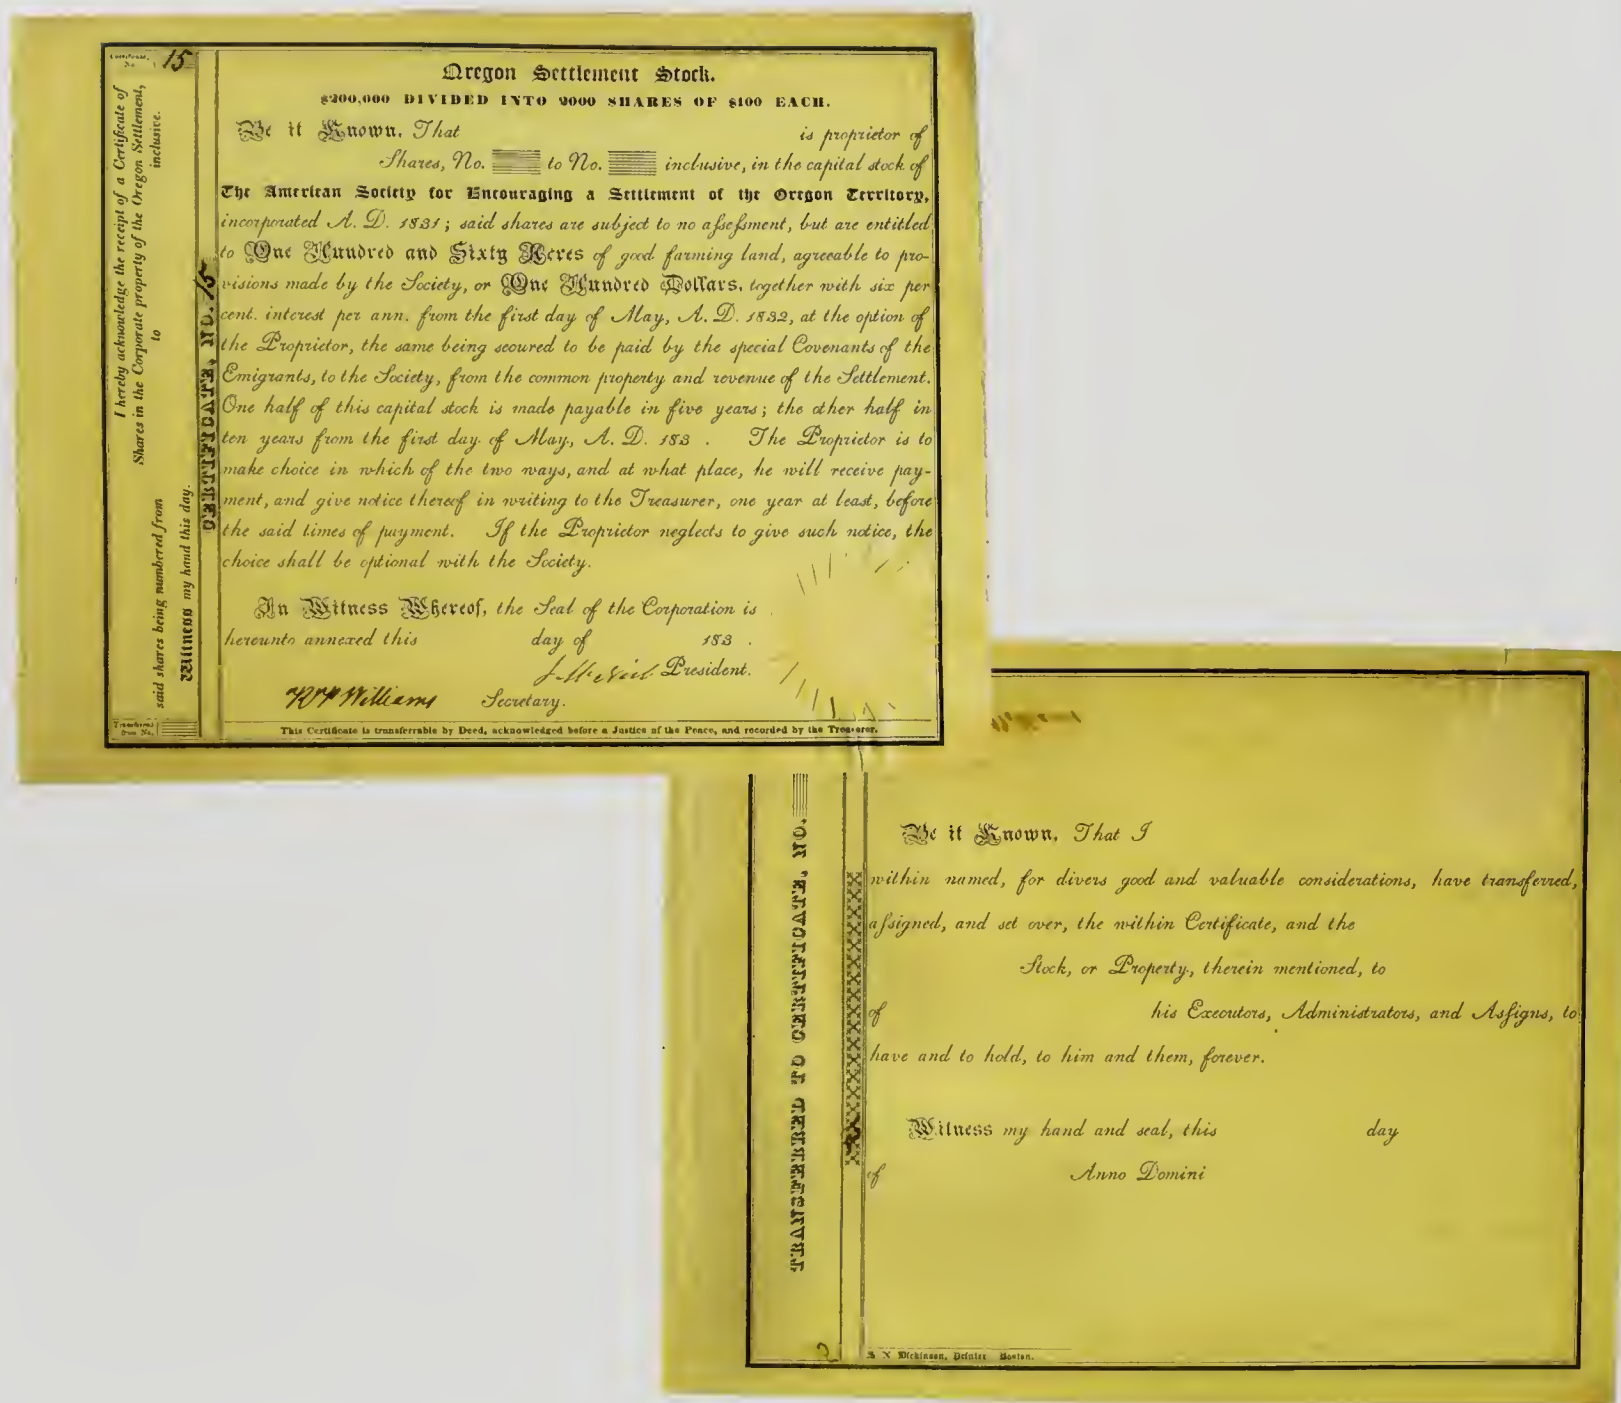 Certificate, No. 15
I hereby acknowledge the receipt of a Certificate of
Shares in the Corporate property of the Oregon Settlement,
said shares being numbered from to inclusive.
Witness my hand this day.
Transferred from No.
CERTIFICATE, NO. 15
Oregon Settlement Stock.
$200,000 DIVIDED INTO 2000 SHARES OF $100 EACH.
Be it Known, That is proprietor of
Shares, No. to No. inclusive, in the capital stock of
The American Society for Encouraging a Settlement of the Oregon Territory,
incorporated A. D. 1831; said shares are subject to no aſseſsment, but are entitled
to One Hundred and Sixty Acres of good farming land, agreeable to pro-
visions made by the Society, or One Hundred Dollars, together with six per
cent. interest per ann. from the first day of May, A. D. 1832, at the option of
the Proprietor, the same being secured to be paid by the special Covenants of the
Emigrants, to the Society, from the common property and revenue of the Settlement.
One half of this capital stock is made payable in five years; the other half in
ten years from the first day of May, A. D. 183 . The Proprietor is to
make choice in which of the two ways, and at what place, he will receive pay-
ment, and give notice thereof in writing to the Treasurer, one year at least, before
the said times of payment. If the Proprietor neglects to give such notice, the
choice shall be optional with the Society.
In Witness Whereof, the Seal of the Corporation is
hereunto annexed this day of 183 .
President.
Williams Secretary.
This Certificate is transferrable by Deed, acknowledged before a Justice of the Peace, and recorded by the Treasurer.
TRANSFERRED TO CERTIFICATE, NO.
Be it Known, That I
within named, for divers good and valuable considerations, have transferred,
aſsigned, and set over, the within Certificate, and the
Stock, or Property, therein mentioned, to
of his Executors, Administrators, and Aſsigns, to
have and to hold, to him and them, forever.
Witness my hand and seal, this day
of Anno Domini
S N Dickinson, Printer Boston.